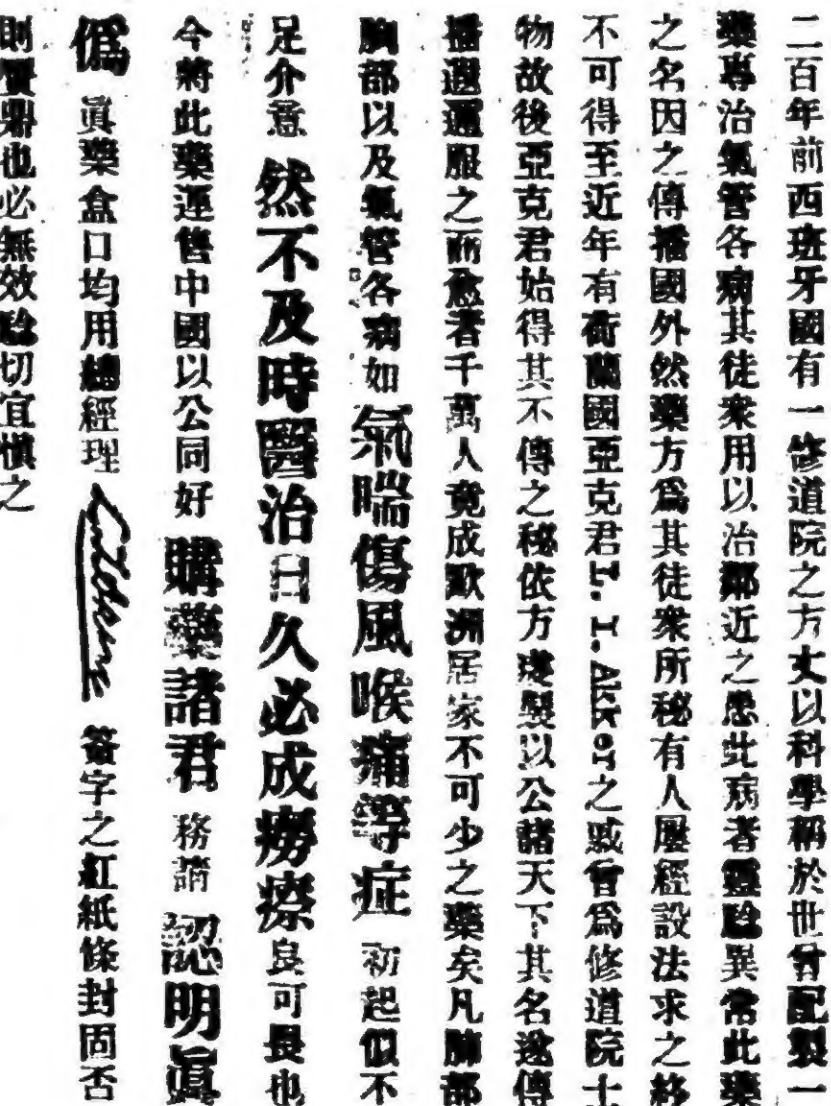 二百年前西班牙國有一修道院之方丈以科學稱於世曾配製一
藥專治氣管各病其徒衆用以治鄰近之患此病者靈驗異常此藥
之名因之傳播國外然藥方爲其徒衆所秘有人屢經設法求之終
不可得至近年有荷蘭國亞克君L. I. Akker之戚曾爲修道院士
物故後亞克君始得其不傳之秘依方製以公諸天下其名遂傳
播遐邇服之而愈者千萬人竟成歐洲居家不可少之藥矣凡肺部
胸部以及氣管各病如氣喘傷風喉痛等症初起似不
足介意然不及時醫治日久必成癆瘵良可畏也
今將此藥運售中國以公同好購藥諸君務請認明眞
僞眞藥盒口均用總經理簽字之紅紙條封固否
則贋鼎也必無效驗切宜慎之